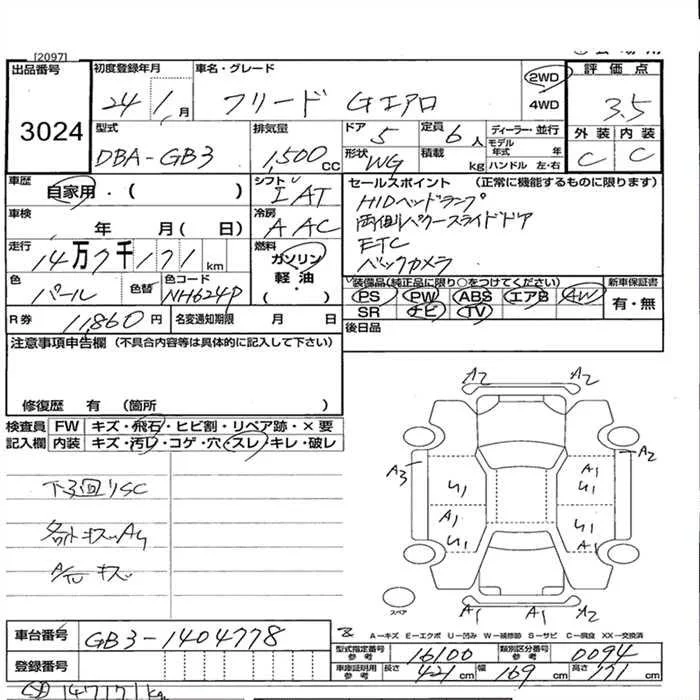 [2097]
出品番号 初度登録年月 車名・グレード 2WD 評価点
3024 24 1月 フリード Gエアロ 4WD 3.5
型式 排気量 ドア 定員 ディーラー・並行 外装 内装
DBA-GB3 1,500cc 5 6人 モデル年式 年 C C
形状 WG 積載 kg ハンドル 左・右
車歴 自家用・( ) シフト IAT セールスポイント (正常に機能するものに限ります)
HIDヘッドランプ
車検 年 月( 日) 冷房 AAC 両側パワースライドドア
走行 14万7千171km 燃料 ガソリン ETC
軽油 バックカメラ
色 パール 色替 色コード NH624P ・( ) 装備品(純正品に限り○をつけてください) 新車保証書
PS PW ABS エアB AW 有・無
R券 11,860円 名変通知期限 月 日 SR ナビ TV
後日品
注意事項申告欄 (不具合内容等は具体的に記入して下さい)
修復歴 有 (箇所 )
検査員 FW キズ・飛石・ヒビ割・リペア跡・×要
記入欄 内装 キズ・汚レ・コゲ・穴・スレ・キレ・破レ
A2 A2
A3 A1 A2
U1 U1
A1 U1
U1 A1
A1 A1 A2
スペア
キズ
A-キズ E-エクボ U-凹み W-補修跡 S-サビ C-腐食 XX-交換済
車台番号 GB3-1404778
型式指定番号 参考 16100 類別区分番号 参考 0094
登録番号 車庫証明用 参考 長さ 421cm 幅 169cm 高さ 171cm
147171km